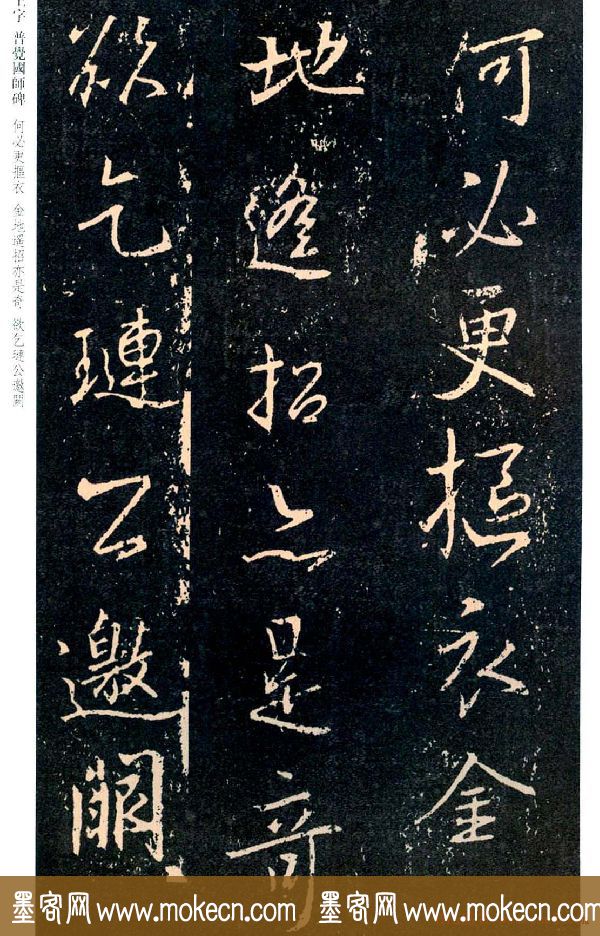 何必更摳衣金
地遥招亦是奇
欲乞璉公邀
普覺國師碑 何必更摳衣 金地遥招亦是奇 欲乞璉公邀
墨客网 www.mokecn.com 墨客网 www.mokecn.com